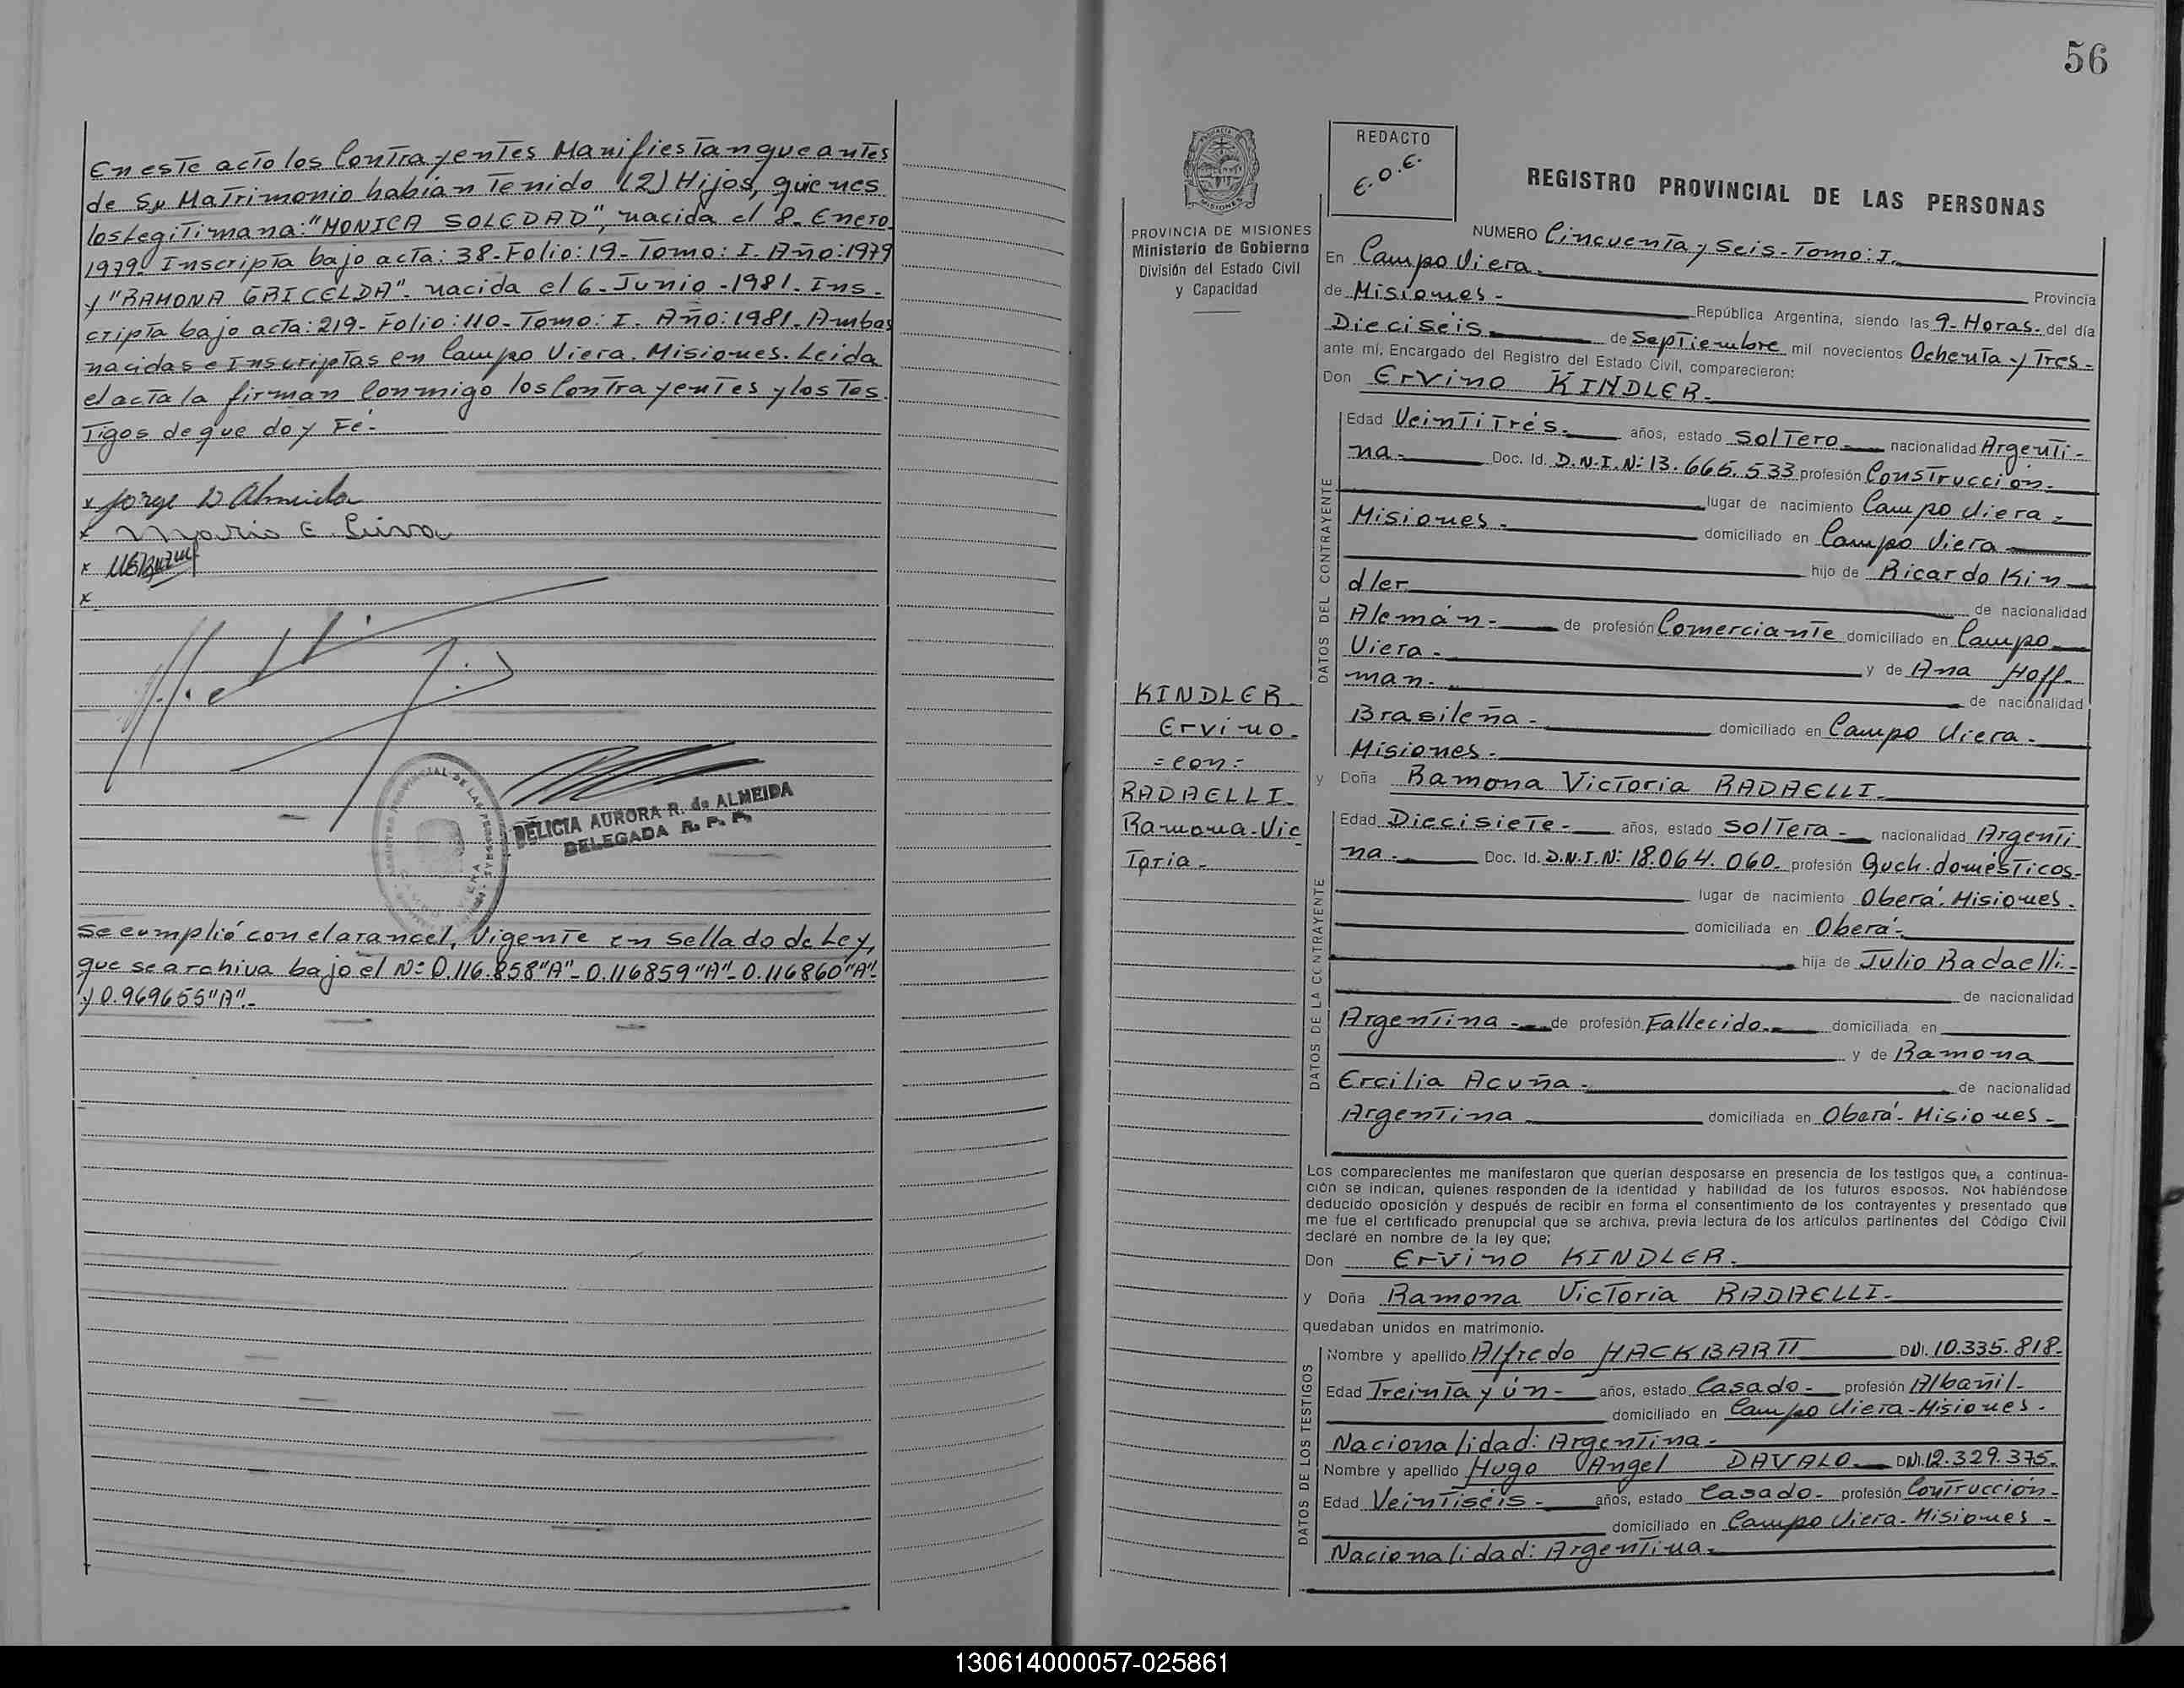 En este acto los Contrayentes Manifiestan que antes
de Su Matrimonio habian Tenido (2) Hijos, quienes
los Legitimana: "MONICA SOLEDAD", nacida el 8-Enero
1979. Inscripta bajo acta: 38-Folio: 19-Tomo: I. Año: 1979
y "RAMONA GRICELDA". nacida el 6-Junio-1981-Ins-
cripta bajo acta: 219-Folio: 110-Tomo: I. Año: 1981. Ambas
nacidas e Inscriptas en Campo Viera. Misiones. Leida
el acta la firman Conmigo los Contrayentes y los Tes.
Tigos de que doy Fé.-
x Jorge D Almida
x Maria E.
x
x
REGISTRO PROVINCIAL DE LAS PERSONAS
DELICIA AURORA R. de ALMEIDA
DELEGADA R. P. P.
Se cumplió con el arancel, Vigente en Sellado de Ley,
que se archiva bajo el Nº 0.116.858"A"-0.116859"A"-0.116860"A"-
y 0.969655"A"-
56
PROVINCIA DE MISIONES
Ministerio de Gobierno
División del Estado Civil
y Capacidad
KINDLER
Ervino-
=con=
RADAELLI-
Ramona-Vic
Toria-
REDACTO
E.O.E.
REGISTRO PROVINCIAL DE LAS PERSONAS
NUMERO Cincuenta y Seis-Tomo: I.
En Campo Viera. Provincia
de Misiones- República Argentina, siendo las 9-Horas- del día
Dieciseis de Septiembre mil novecientos Ochenta y Tres-
ante mí, Encargado del Registro del Estado Civil, comparecieron:
Don Ervino KINDLER.
DATOS DEL CONTRAYENTE
Edad Veinti Trés. años, estado Soltero nacionalidad Argenti-
na- Doc. Id. D.N.I.Nº 13.665.533 profesión Construcción-
lugar de nacimiento Campo Viera-
Misiones- domiciliado en Campo Viera
hijo de Ricardo Kin
dler de nacionalidad
Alemán- de profesión Comerciante domiciliado en Campo
Viera- y de Ana Hoff-
man- de nacionalidad
Brasileña- domiciliado en Campo Viera-
Misiones-
y Doña Ramona Victoria RADAELLI-
DATOS DE LA CONTRAYENTE
Edad Diecisiete- años, estado Soltera- nacionalidad Argenti
na- Doc. Id. D.N.I.Nº 18.064.060- profesión Queh. domésticos-
lugar de nacimiento Oberá. Misiones.
domiciliada en Oberá-
hija de Julio Radaelli-
de nacionalidad
Argentina- de profesión Fallecido- domiciliada en
y de Ramona
Ercilia Acuña- de nacionalidad
Argentina domiciliada en Oberá-Misiones-
Los comparecientes me manifestaron que querían desposarse en presencia de los testigos que, a continua-
ción se indican, quienes responden de la identidad y habilidad de los futuros esposos. No habiéndose
deducido oposición y después de recibir en forma el consentimiento de los contrayentes y presentado que
me fue el certificado prenupcial que se archiva, previa lectura de los artículos pertinentes del Código Civil
declaré en nombre de la ley que;
Don Ervino KINDLER.
y Doña Ramona Victoria RADAELLI-
quedaban unidos en matrimonio.
DATOS DE LOS TESTIGOS
Nombre y apellido Alfredo HACKBARTT DNI. 10.335.818-
Edad Treinta y ún- años, estado Casado- profesión Albañil-
domiciliado en Campo Viera-Misiones-
Nacionalidad: Argentina-
Nombre y apellido Hugo Angel DAVALO DNI. 12.329.375-
Edad Veintiséis- años, estado Casado- profesión Contrucción-
domiciliado en Campo Viera-Misiones-
Nacionalidad: Argentina-
130614000057-025861